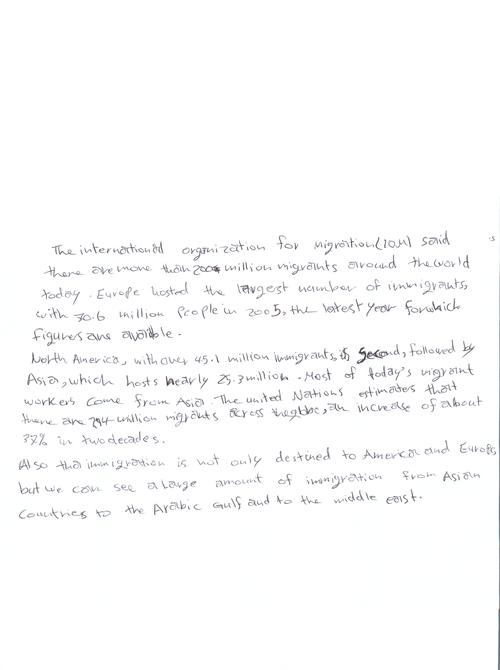 The international organization for migration (IOM) said
there are more than 200 million migrants around the world
today. Europe hosted the largest number of immigrants,
with 70.6 million People in 2005, the latest year for which
figures are available.
North America, with over 45.1 million immigrants, is Second, followed by
Asia, which hosts nearly 25.3 million. Most of today's migrant
workers come from Asia. The united Nations estimates that
there are 214 million migrants across the globe, an increase of about
37% in two decades.
Also this immigration is not only destined to America and Europe
but we can see a large amount of immigration from Asian
Countries to the Arabic Gulf and to the middle east.